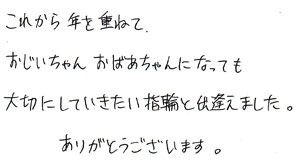 これから 年を重ねて.
おじいちゃん おばあちゃんになっても
大切にしていきたい指輪と出逢えました。
ありがとうございます。